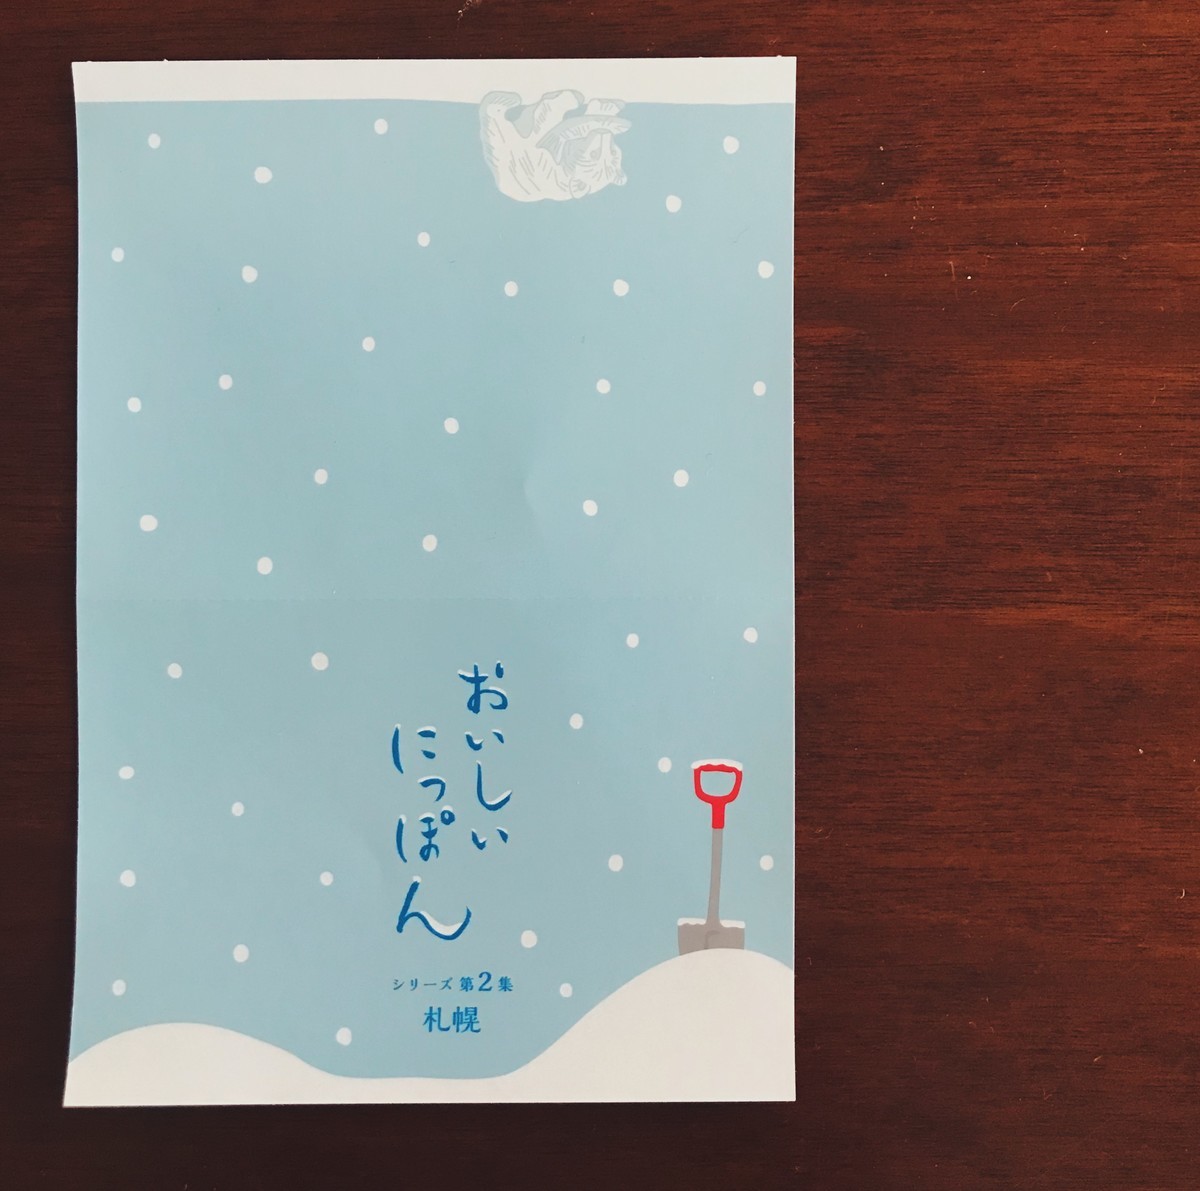 おいしい
にっぽん
シリーズ 第2集
札幌